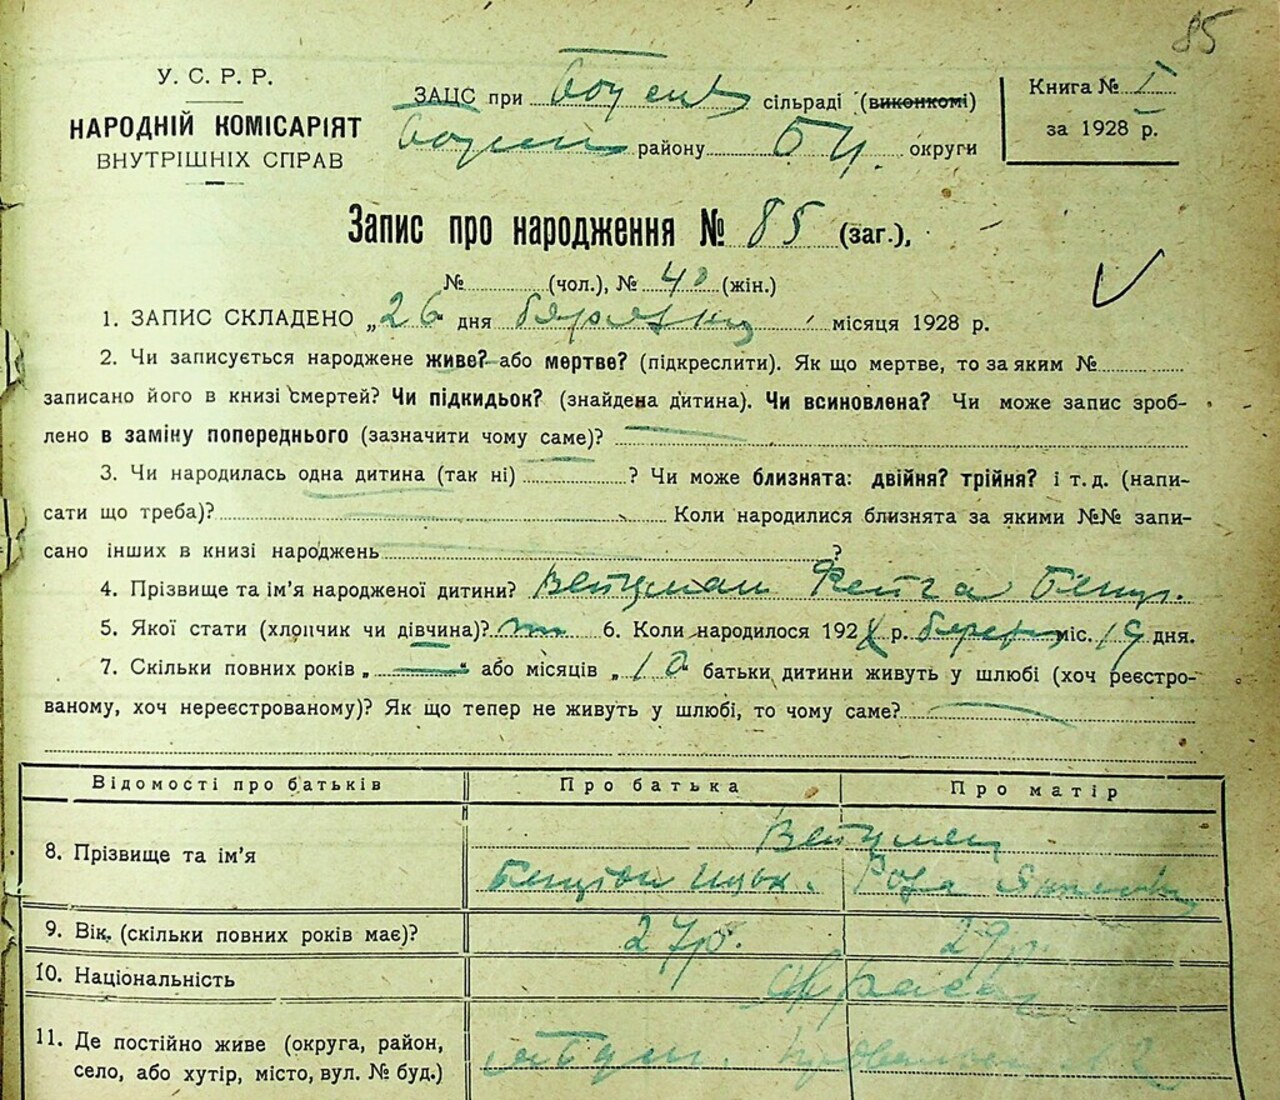 85
У. С. Р. Р.
НАРОДНІЙ КОМІСАРІЯТ
ВНУТРІШНІХ СПРАВ
ЗАЦС при сільраді (виконкомі)
району БЦ. округи
Книга № I
за 1928 р.
Запис про народження № 85 (заг.),
№ (чол.), № 40 (жін.)
1. ЗАПИС СКЛАДЕНО „26 дня березня місяця 1928 р.
2. Чи записується народжене живе? або мертве? (підкреслити). Як що мертве, то за яким №
записано його в книзі смертей? Чи підкидьок? (знайдена дитина). Чи всиновлена? Чи може запис зроб-
лено в заміну попереднього (зазначити чому саме)?
3. Чи народилась одна дитина (так ні) ? Чи може близнята: двійня? трійня? і т. д. (напи-
сати що треба)? Коли народилися близнята за якими №№ запи-
сано інших в книзі народжень ?
4. Прізвище та ім'я народженої дитини? Вейцман Фейга Бенц.
5. Якої стати (хлопчик чи дівчина)? 6. Коли народилося 1928 р. березня міс. 19 дня.
7. Скільки повних років „ — " або місяців „10" батьки дитини живуть у шлюбі (хоч реєстро-
ваному, хоч нереєстрованому)? Як що тепер не живуть у шлюбі, то чому саме?
Відомості про батьків Про батька Про матір
8. Прізвище та ім'я Вейцман
Бенціон Ицък. Роза
9. Вік (скільки повних років має)? 27р. 29р.
10. Національність
11. Де постійно живе (округа, район,
село, або хутір, місто, вул. № буд.)